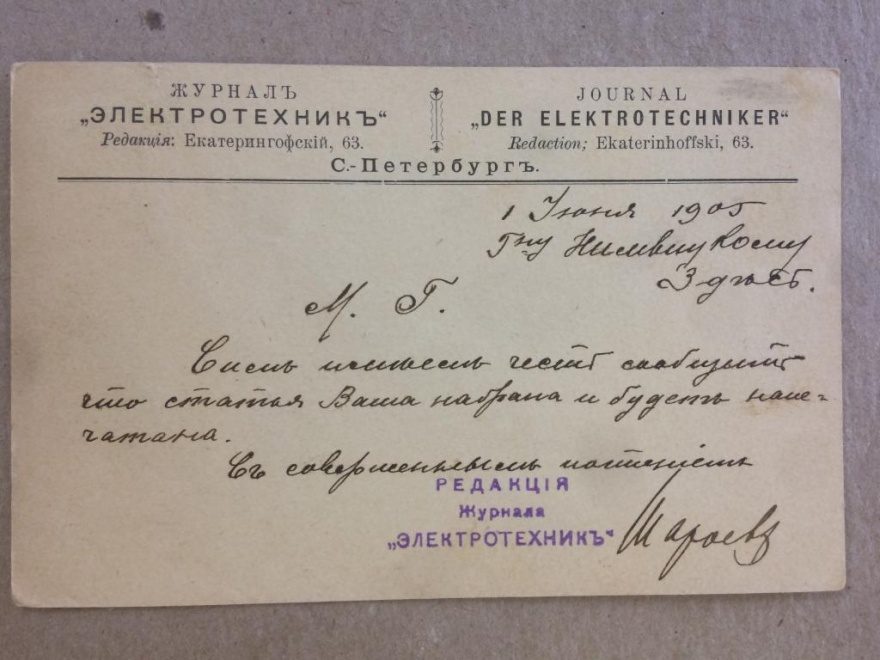 ЖУРНАЛЪ
„ЭЛЕКТРОТЕХНИКЪ“
Редакція: Екатерингофскій, 63.
JOURNAL
„DER ELEKTROTECHNIKER“
Redaction; Ekaterinhoffski, 63.
С.-Петербургъ.
1 Июня 1905
Гну
Здѣсь.
М. Г.
Симъ имѣемъ честь сообщить
что статья Ваша набрана и будетъ напе-
чатана.
Съ совершеннымъ почтеніемъ
РЕДАКЦІЯ
Журнала
„ЭЛЕКТРОТЕХНИКЪ“